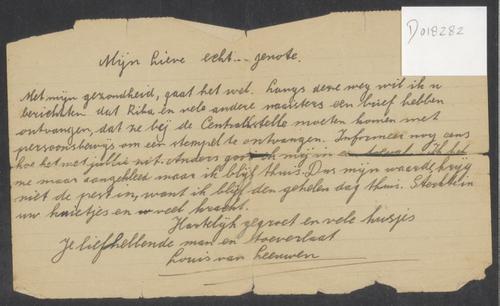 D018282
Mijn lieve echt-- genote.
Met mijn gezondheid, gaat het wel. Langs deze weg wil ik u
berichten dat Rika en vele andere naaisters een brief hebben
ontvangen, dat ze bij de Centralstelle moeten komen met
persoonsbewijs om een stempel te ontvangen. Informeer nog eens
hoe het met jullie zit. Anders mij in
me maar aangekleed maar ik blijf thuis. Dus mijn waarde krijg
niet de pest in, want ik blijf den geheelen dag thuis. Sterkte in
uw en veel kracht.
Hartelijk gegroet en vele kusjes
Je liefhebbende man en toeverlaat
Louis van Leeuwen